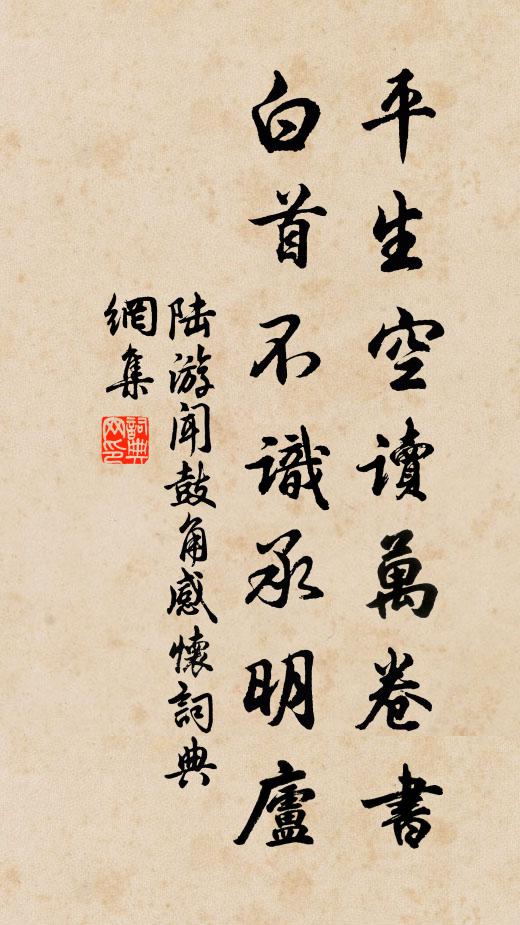 平生空讀萬卷書
白首不識承明廬
陆游闻鼓角感懷詞典
網集
詞典网印